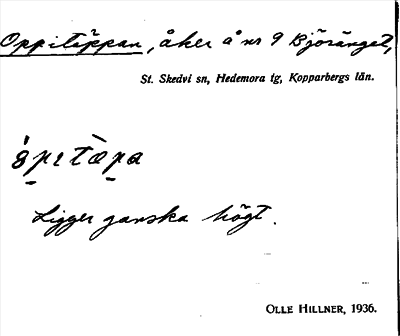 Oppitäppan, åker å nr 9 Björänget,
St. Skedvi sn, Hedemora tg, Kopparbergs län.
Ligger ganska högt.
OLLE HILLNER, 1936.